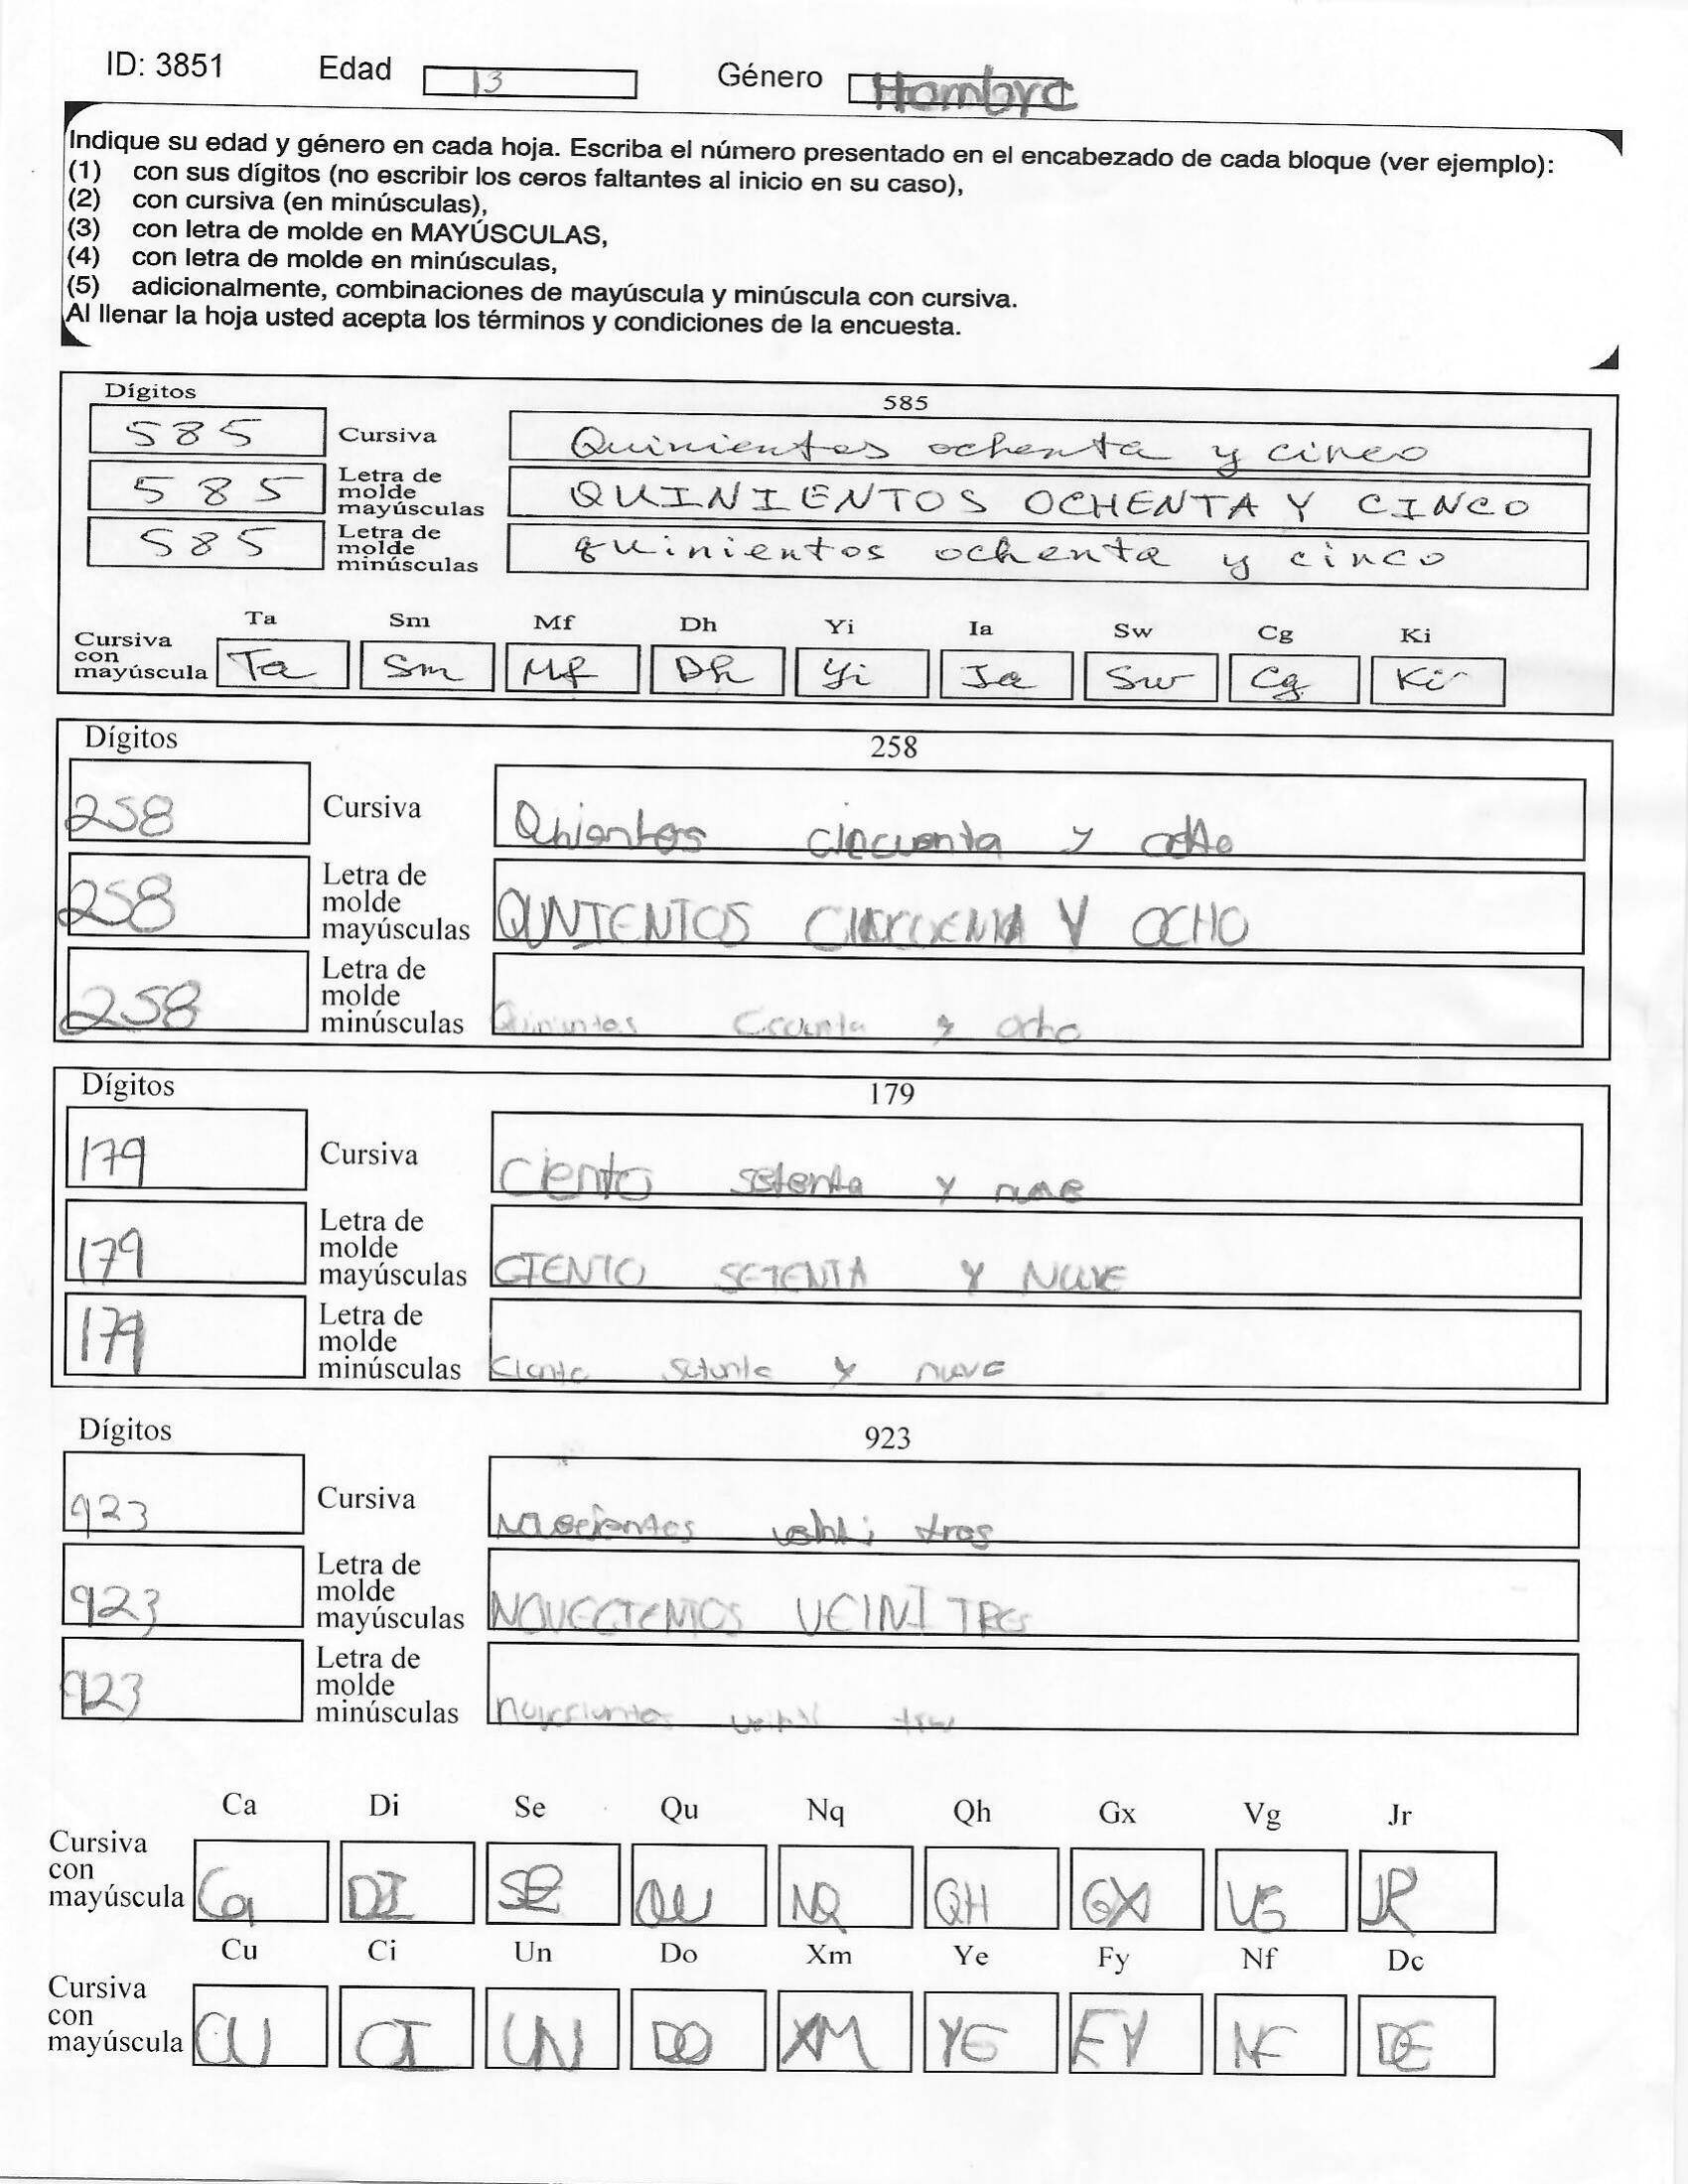 ID: 3851 Edad 13 Género Hombre
Indique su edad y género en cada hoja. Escriba el número presentado en el encabezado de cada bloque (ver ejemplo):
(1) con sus dígitos (no escribir los ceros faltantes al inicio en su caso),
(2) con cursiva (en minúsculas),
(3) con letra de molde en MAYÚSCULAS,
(4) con letra de molde en minúsculas,
(5) adicionalmente, combinaciones de mayúscula y minúscula con cursiva.
Al llenar la hoja usted acepta los términos y condiciones de la encuesta.
Dígitos 585
585 Cursiva Quinientos ochenta y cinco
585 Letra de molde mayúsculas QUINIENTOS OCHENTA Y CINCO
585 Letra de molde minúsculas quinientos ochenta y cinco
Ta Sm Mf Dh Yi Ia Sw Cg Ki
Cursiva con mayúscula Ta Sm Mf Dh Yi Ia Sw Cg Ki
Dígitos 258
258 Cursiva Qhientos cincuenta y ocho
258 Letra de molde mayúsculas QUNIENTOS Y OCHO
258 Letra de molde minúsculas y ocho
Dígitos 179
179 Cursiva ciento setenta y
179 Letra de molde mayúsculas CIENTO SETENTA Y NUVE
179 Letra de molde minúsculas ciento y nueve
Dígitos 923
923 Cursiva tres
923 Letra de molde mayúsculas NOVECIENTOS VEINI TRES
923 Letra de molde minúsculas
Ca Di Se Qu Nq Qh Gx Vg Jr
Cursiva con mayúscula Ca DI SE QU NQ QH GX VG JR
Cu Ci Un Do Xm Ye Fy Nf Dc
Cursiva con mayúscula CU CI UN DO XM YE FY NF DE